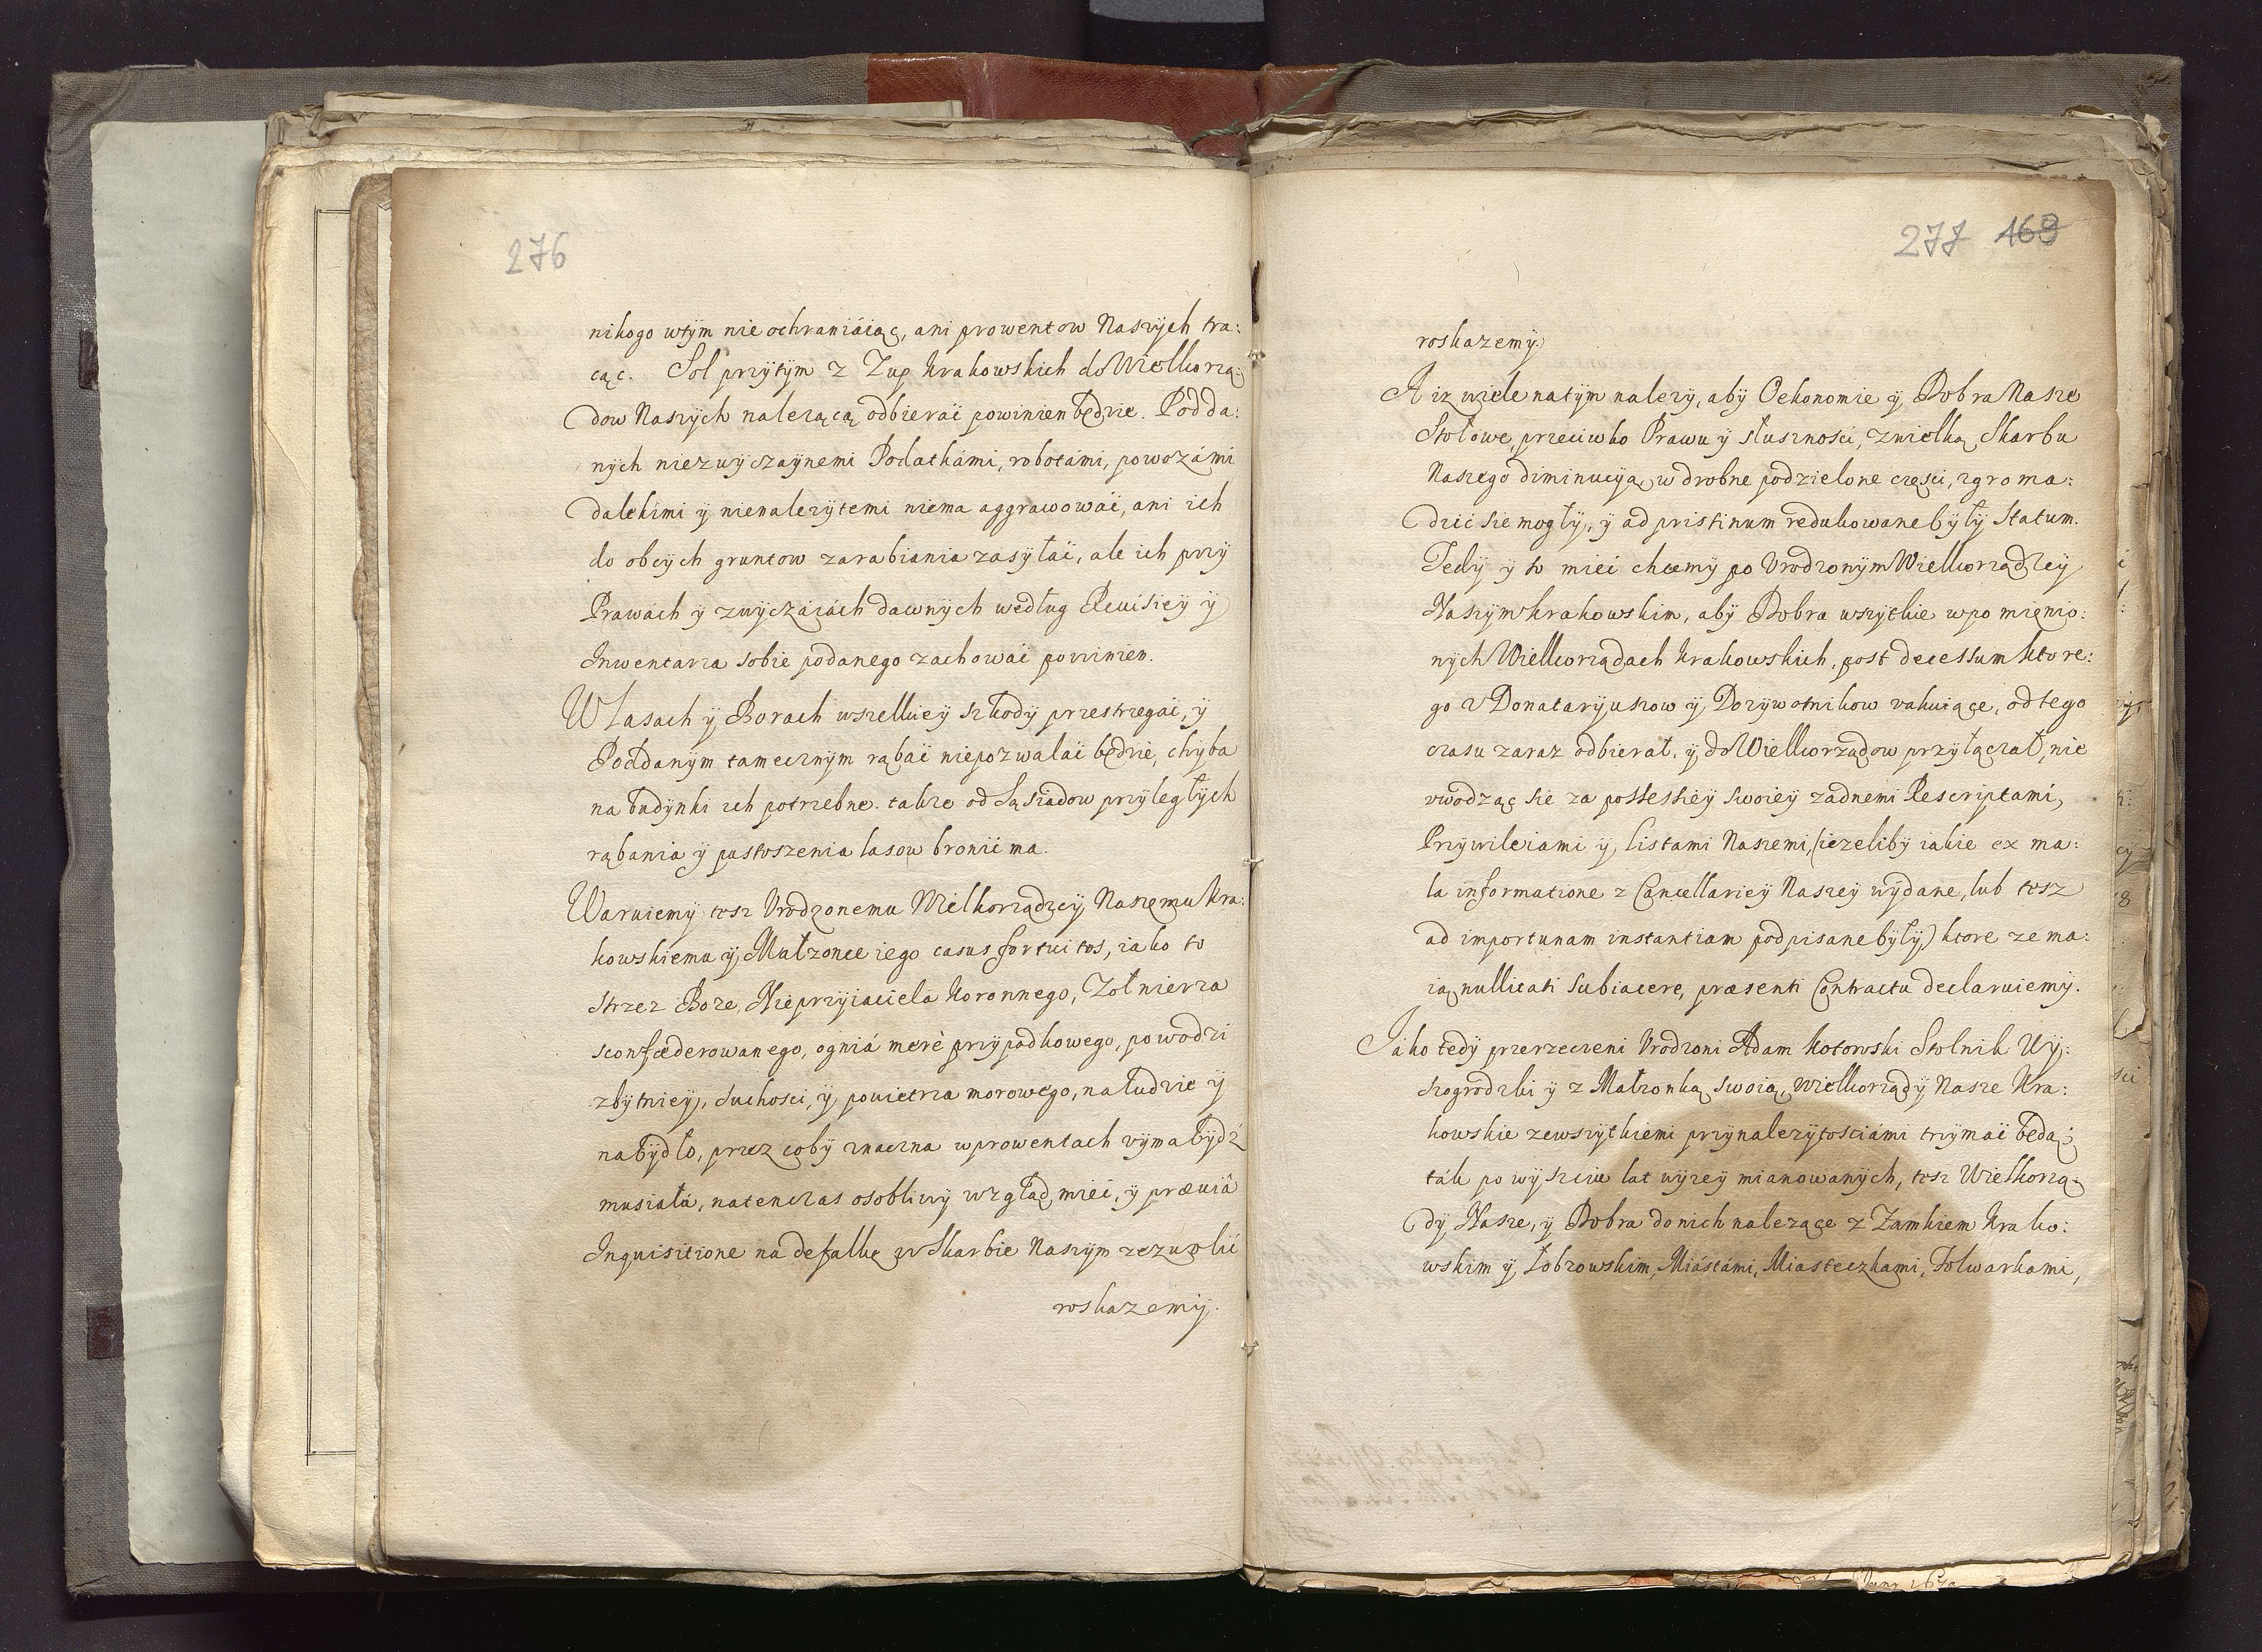 276
nikogo wtÿm nie ochraniáiąc, ani prowentow Naszÿch tra:
cąc. Sol przÿtÿm z Zup Krakowskich do Wielkorzą:
dow Naszÿch nalezącą odbierać powinien będzie. Podda:
nÿch niezwÿczaÿnemi Podatkámi, robotámi, powozámi
dalekimi ÿ nienalezÿtemi niema aggrawować, ani ich
do obcÿch gruntow zarabiania zasÿłać, ale ich przÿ
Prawách ÿ zwÿczáiách dawnÿch według Reuisieÿ ÿ
Inwentarza sobie podanego zachować powinien.
W Lasach ÿ Borach wszelkieÿ szkodÿ przestrzegać, ÿ
Poddanÿm tamecznÿm rąbać niepozwalać będzie, chÿba
na budÿnki ich potrzebne. takze od Sąsiadow przÿległÿch
rąbania ÿ pustoszenia lasow bronić ma.
Waruiemÿ tesz Vrodzonemu Wielkorządzcÿ Naszemu Kra:
kowskiemu ÿ Małzonce iego casus fortuitos, iako to
strzez Boze, Nieprzÿiaciela Koronnego, Zołnierza
sconfœderowanego, ogniá merè przÿpadkowego, powodzi
zbÿtnieÿ, suchosci, ÿ powietrza morowego, na ludzie ÿ
na bÿdło, przez cobÿ znaczna w prowentach vÿma bÿdź
musiałá, natenczas osobliwÿ wzgląd mieć, ÿ præuiâ
Inquisitione na defalkę w Skarbie Naszÿm zezwolić
roskazemÿ.
277 169
roskazemÿ.
A iz wiele natÿm nalezÿ, abÿ Oekonomie ÿ Dobra Nasze
Stołowe, przeciwko Prawu ÿ słusznosci, zwielką Skarbu
Naszego diminucÿą w drobne podzielone częsci, zgroma:
dzić sie mogłÿ, ÿ ad pristinum redukowane bÿłÿ Statum.
Tedÿ ÿ to mieć chcemÿ po Vrodzonÿm Wielkorządzcÿ
Naszÿm Krakowskim, abÿ Dobra wszÿtkie wpomienio:
nÿch Wielkorządach Krakowskich, post decessum ktore:
go v Donatarÿuszow ÿ Dozÿwotnikow vakuiące, od tego
czasu zaraz odbierał, ÿ do Wielkorządow przÿłączał, nie
vwodząc sie za possessieÿ swoieÿ zadnemi Rescriptami,
Przÿwileiami ÿ Listami Naszemi, (iezelibÿ iakie ex ma:
la informatione z Cancellarieÿ Naszeÿ wÿdane, lub tesz
ad importunam instantiam podpisane bÿłÿ) ktore ze ma:
ią nullitati subiacere, præsenti Contractu declaruiemÿ.
Jáko tedÿ przerzeczeni Vrodzoni Adam Kotowski Stolnik Wÿ:
szogrodzki ÿ z Małzonką swoią, wielkorządÿ Nasze Kra:
kowskie zewszÿtkiemi przÿnalezÿtosciámi trzÿmać będą;
ták po wÿsciu lat wÿzeÿ mianowanÿch, tesz Wielkorzą:
dÿ Nasze, ÿ Dobra do nich nalezące z Zamkiem Krako:
wskim ÿ Łobzowskim, Miástámi, Miasteczkami, Folwarkami,